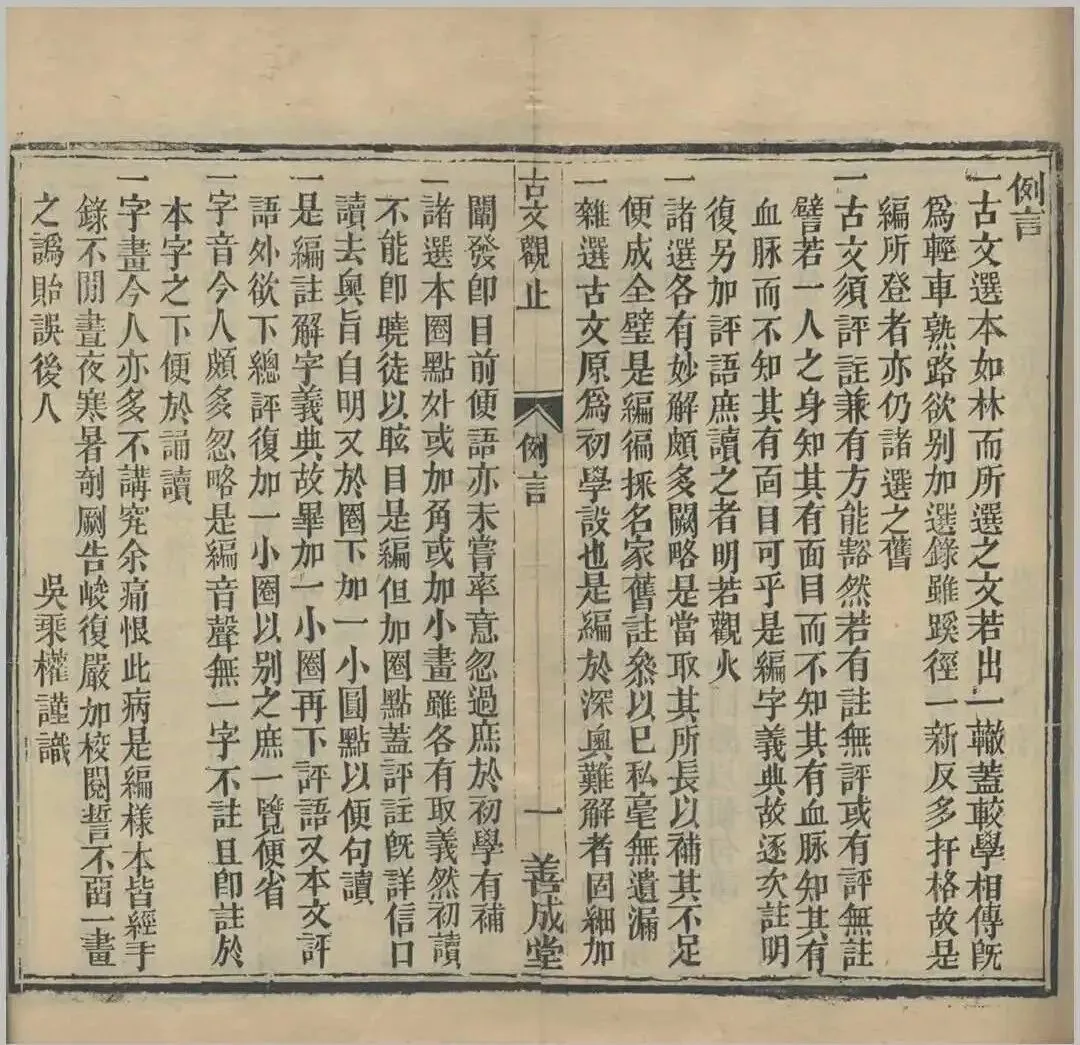 例言
一古文選本如林而所選之文若出一轍蓋較學相傳旣
爲輕車熟路欲别加選錄雖蹊徑一新反多扞格故是
編所登者亦仍諸選之舊
一古文須評註兼有方能豁然若有註無評或有評無註
譬若一人之身知其有面目而不知其有血脉知其有
血脉而不知其有面目可乎是編字義典故逐次註明
復另加評語庶讀之者明若觀火
一諸選各有妙解頗多闕略是當取其所長以補其不足
便成全璧是編徧採名家舊註叅以已私毫無遺漏
一雜選古文原爲初學設也是編於深奥難解者固細加
古文觀止
例言
一
善成堂
闡發卽目前便語亦未嘗率意忽過庶於初學有補
一諸選本圈點外或加角或加小畫雖各有取義然初讀
不能卽曉徒以眩目是編但加圈點蓋評註旣詳信口
讀去奥旨自明又於圈下加一小圓點以便句讀
一是編註解字義典故畢加一小圈再下評語又本文評
語外欲下總評復加一小圈以别之庶一覽便省
一字音今人頗多忽略是編音聲無一字不註且卽註於
本字之下便於誦讀
一字畫今人亦多不講究余痛恨此病是編樣本皆經手
錄不閒晝夜寒暑剞劂告峻復嚴加校閱誓不畱一畫
之譌貽誤後人
吳乘權謹識